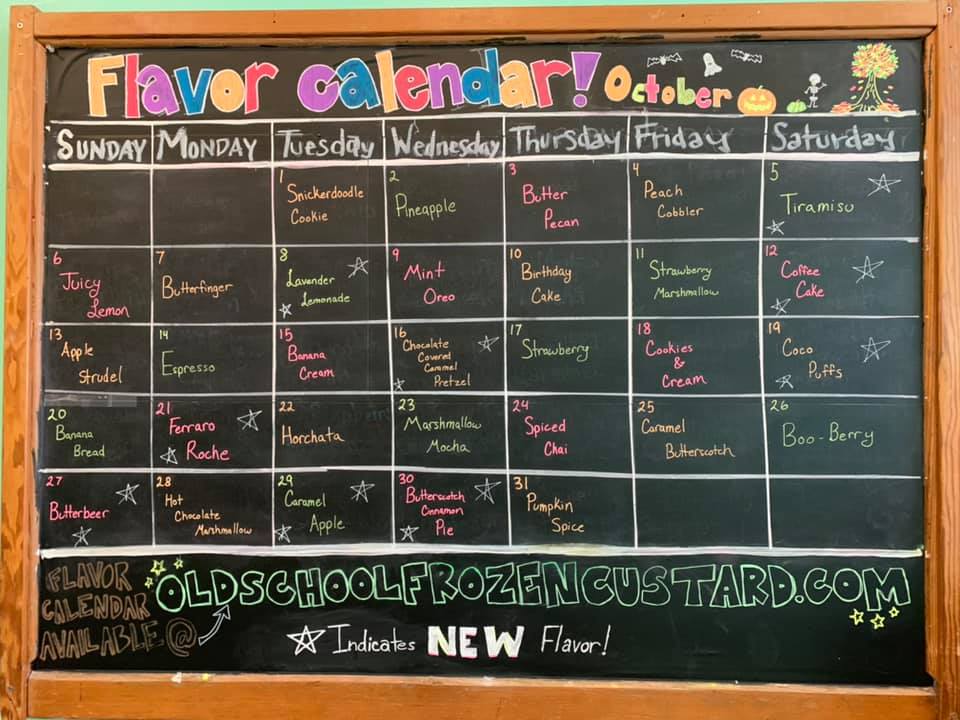 Flavor Calendar! October
Sunday Monday Tuesday Wednesday Thursday Friday Saturday
1
Snickerdoodle
Cookie
2
Pineapple
3
Butter
Pecan
4
Peach
Cobbler
5
Tiramisu
6
Juicy
Lemon
7
Butterfinger
8
Lavender
Lemonade
9
Mint
Oreo
10
Birthday
Cake
11
Strawberry
Marshmallow
12
Coffee
Cake
13
Apple
Strudel
14
Espresso
15
Banana
Cream
16
Chocolate
Covered
Caramel
Pretzel
17
Strawberry
18
Cookies
&
Cream
19
Coco
Puffs
20
Banana
Bread
21
Ferraro
Roche
22
Horchata
23
Marshmallow
Mocha
24
Spiced
Chai
25
Caramel
Butterscotch
26
Boo-Berry
27
Butterbeer
28
Hot
Chocolate
Marshmallow
29
Caramel
Apple
30
Butterscotch
Cinnamon
Pie
31
Pumpkin
Spice
Flavor
Calendar
Available @
OLDSCHOOLFROZENCUSTARD.COM
Indicates NEW Flavor!